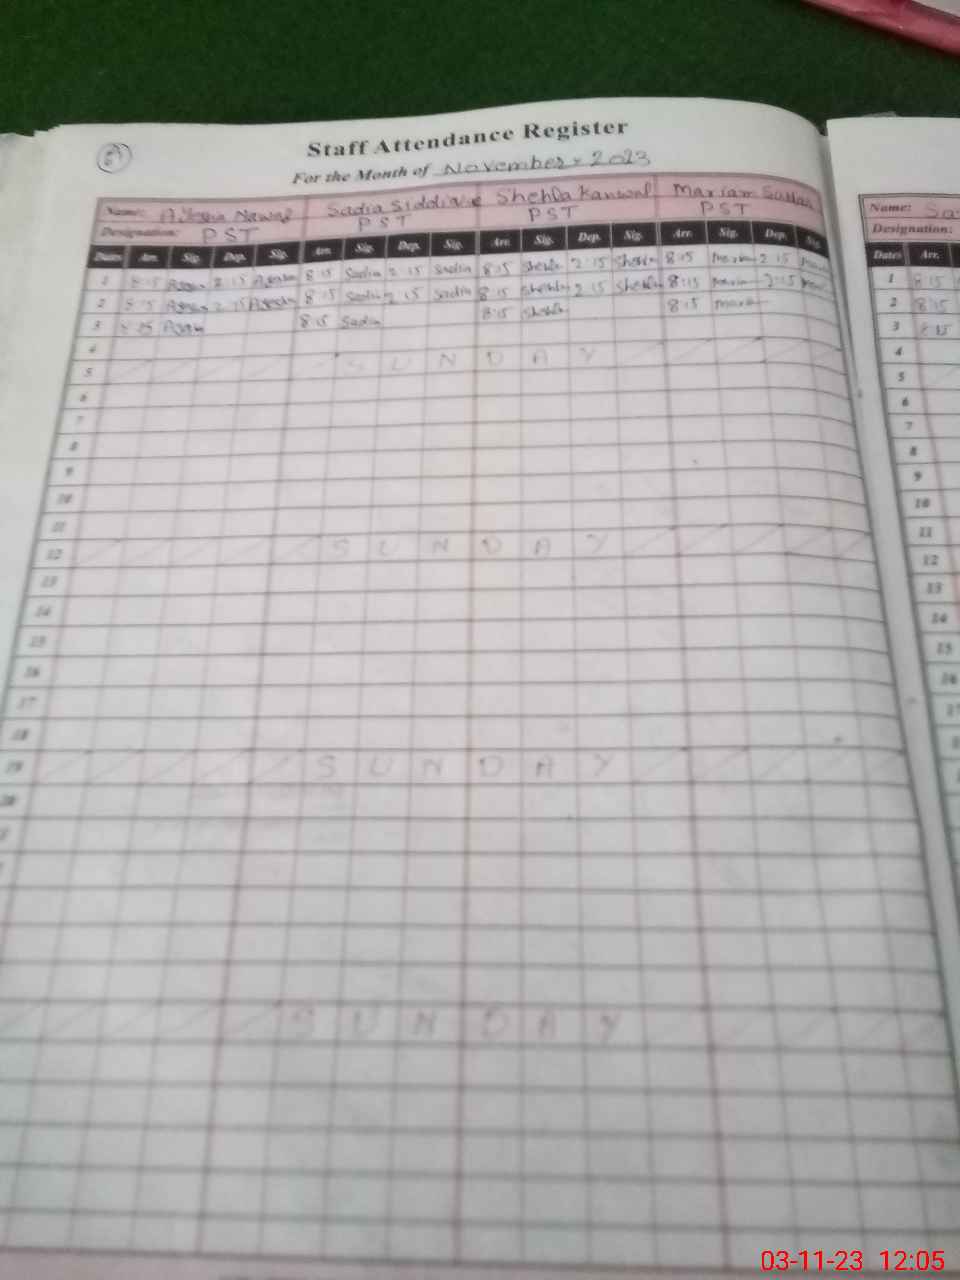 Staff Attendance Register
For the Month of November, 2023
Name: Ayesha Nawal Sadia Siddique Shehla Kanwal Mariam
Designation: PST PST PST PST
Dates Arr. Sig. Dep. Sig. Arr. Sig. Dep. Sig. Arr. Sig. Dep. Sig. Arr. Sig. Dep. Sig.
1 8:15 2:15 8:15 Sadia 2:15 Sadia 8:15 Shehla 2:15 Shehla 8:15 Maria 2:15
2 8:15 2:15 8:15 Sadia 2:15 Sadia 8:15 Shehla 2:15 Shehla 8:15 Maria 2:15
3 8:15 8:15 Sadia 8:15 Shehla 8:15 Maria
4
5 SUNDAY
6
7
8
9
10
11
12 SUNDAY
13
14
15
16
17
18
19 SUNDAY
20
SUNDAY
Name: Sa
Designation:
Dates Arr.
1 8:15
2 8:15
3 8:15
4
5
6
7
8
9
10
11
12
13
14
15
16
03-11-23 12:05